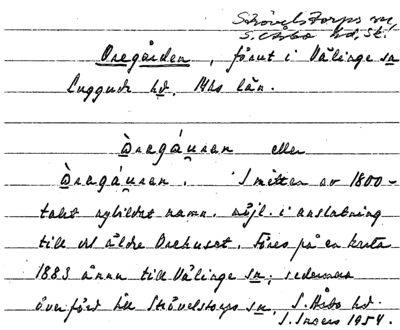 Strövelstorps sn,
S. Åsbo hd. St.!
Oregården, förut i Välinge sn
Luggude hd. Mhs län.
Òregáu̯ren eller
Òregáu̯ren. I mitten av 1800-
talet nybildat namn, möjl. i anslutning
till det äldre Orehuset. Föres på en karta
1883 ännu till Välinge sn; sedermera
överförd till Strövelstorps sn, S. Åsbo hd.
S. Ingers 1954.